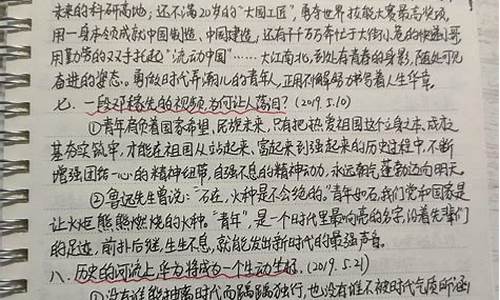 未来的科研高地；还不满20岁的“大国工匠”，勇夺世界技能大赛最高奖项，
用一身本领成就中国制造、中国建造；还有千千万万奔忙于大街小巷的快递小哥
用勤劳的双手托起“流动中国”……大江南北，到处有青春的身影，随处可见
奋进的姿态。勇做时代弄潮儿的青年人，正用不懈努力书写着人生华章。
七、一段邓稼先的视频，为何让人落泪？(2019.5.10)
①青年肩负着国家希望，民族未来，只有把热爱祖国这个立身之本、成才
基夯实筑牢，才能在祖国从站起来、富起来到强起来的历史过程中，不断
增强团结一心的精神纽带，自强不息的精神动力，永远朝气蓬勃迈向明天。
②鲁迅先生曾说：“石在，火种是不会绝的。”青年如石，我们党和国家是
让火炬熊熊燃烧的火种。“青年”，是一个时代里最响亮的名字，沿着先辈们
的足迹，前扑后继，生生不息，就能发出新时代的最强声音。
八、历史的河流上，华为将成为一个生动坐标。(2019.5.21)
①没有谁能抽离时代而踽踽独行，也没有谁不被时代气质所涵